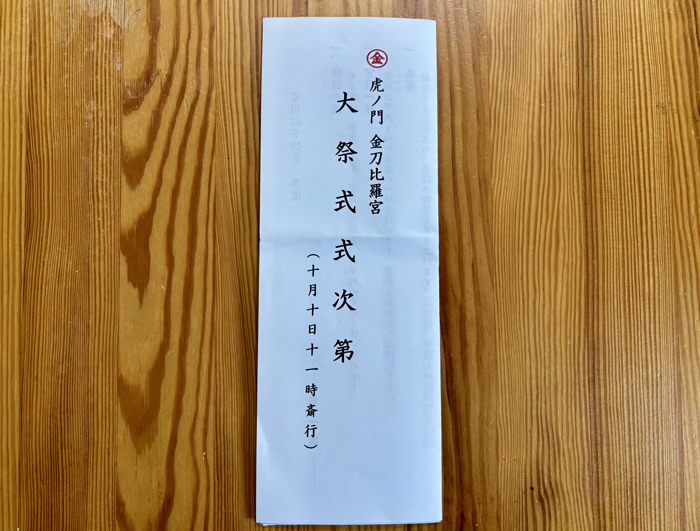 金
虎ノ門 金刀比羅宮
大祭式式次第
(十月十日十一時斎行)